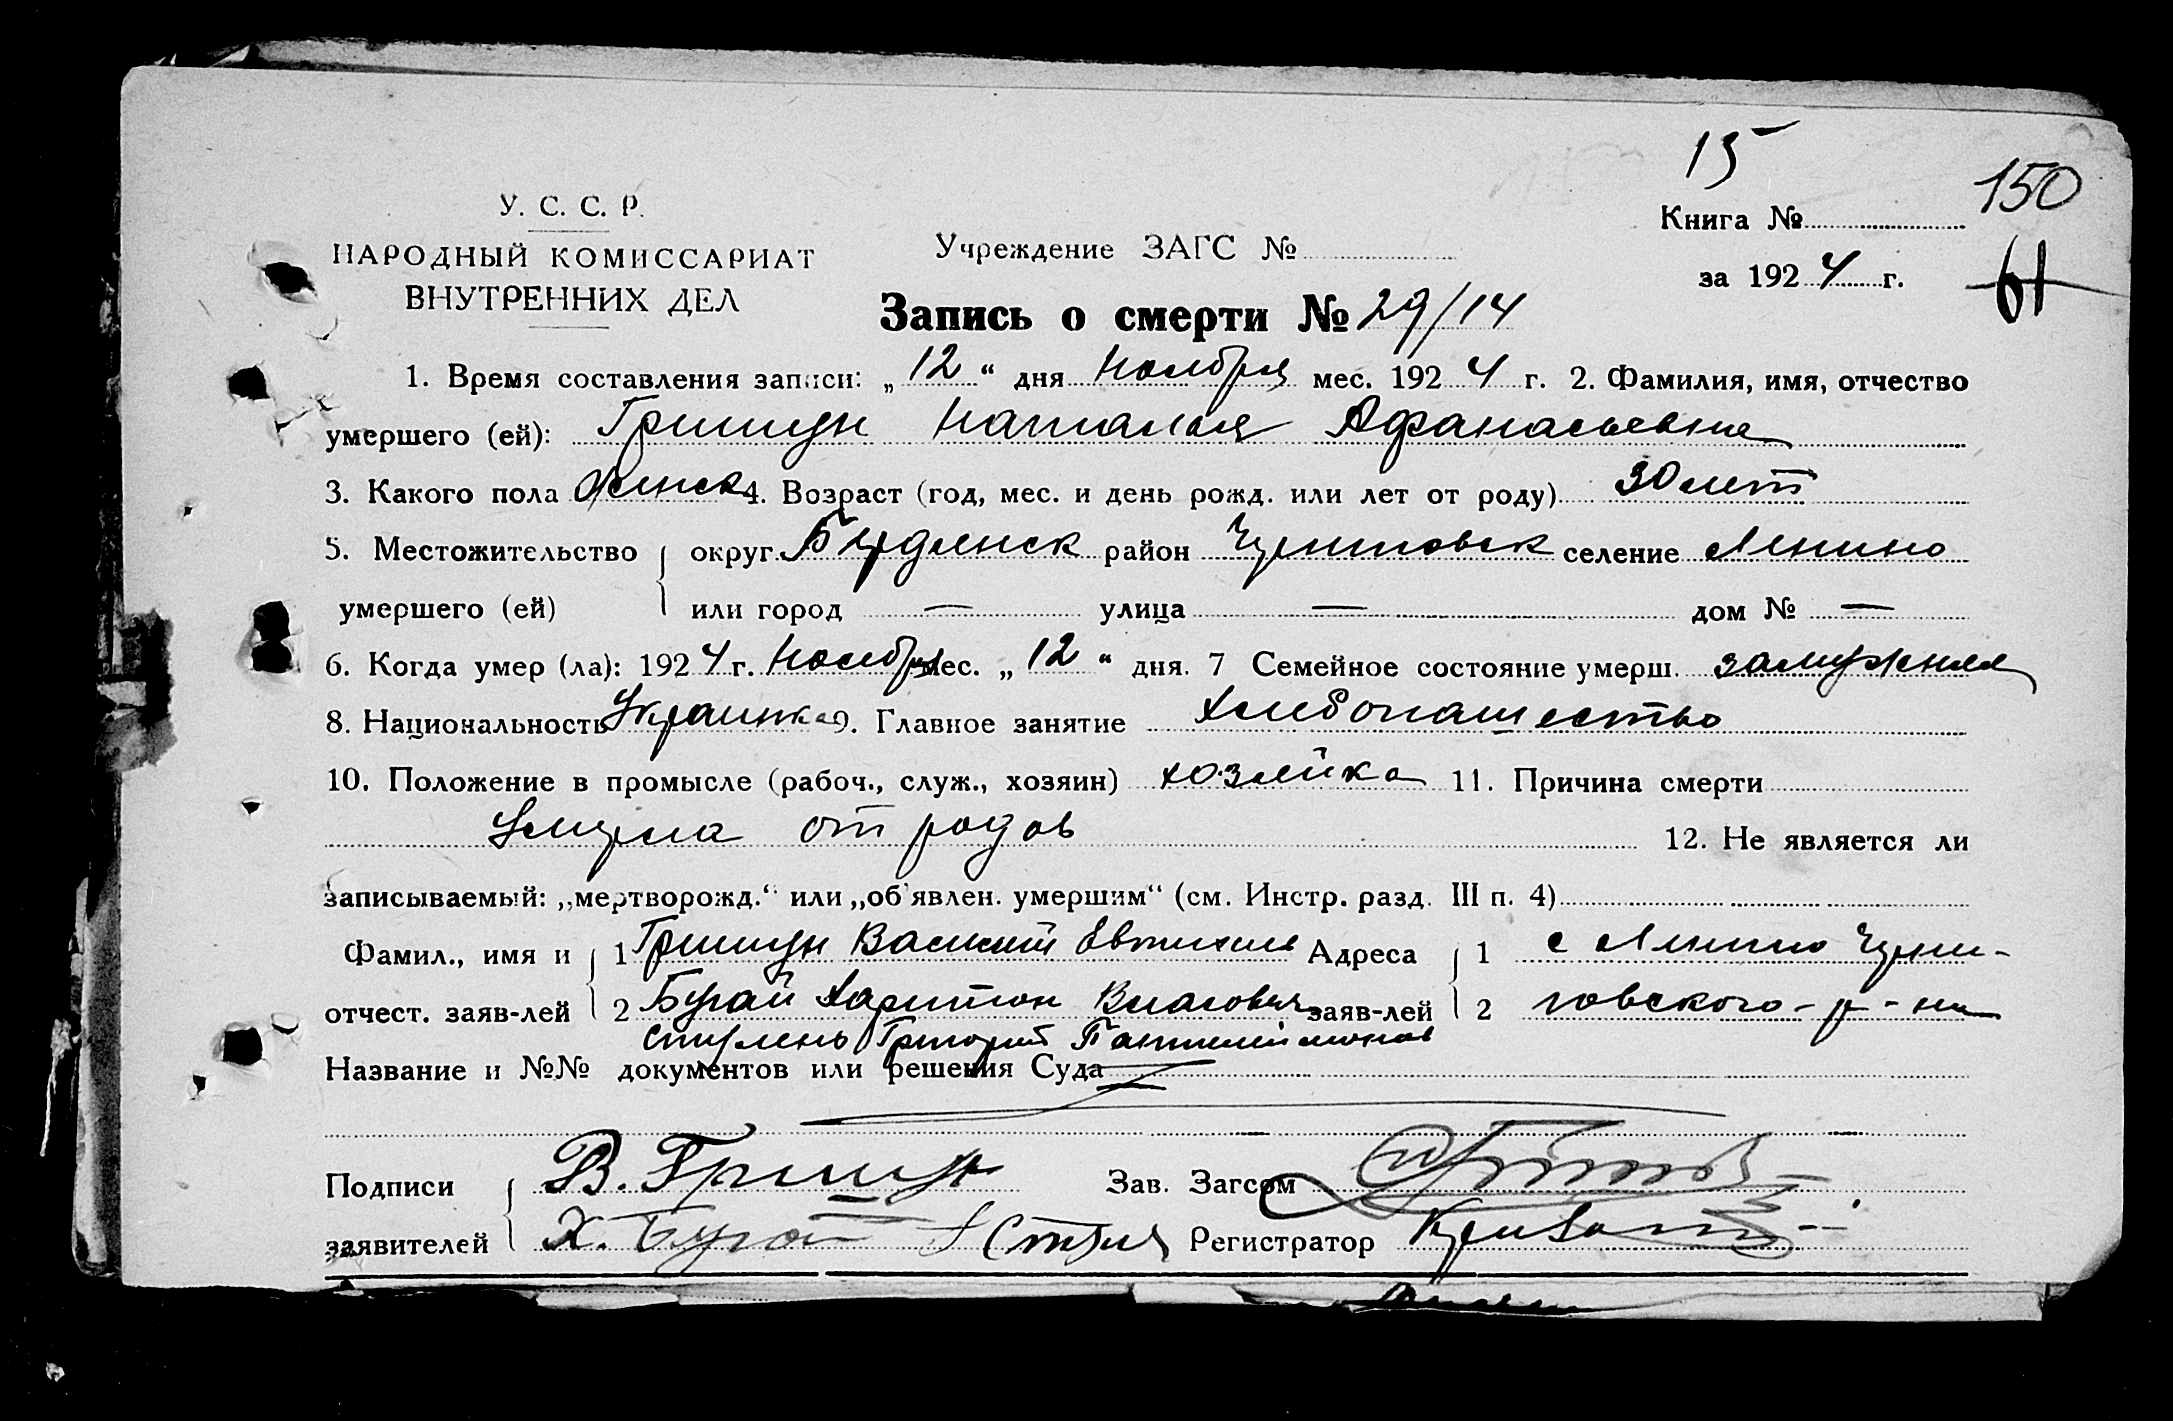 15
150
У. С. С. Р.
Книга №
НАРОДНЫЙ КОМИССАРИАТ
Учреждение ЗАГС №
за 1924 г.
61
ВНУТРЕННИХ ДЕЛ
Запись о смерти № 29/14
1. Время составления записи: „12“ дня Ноября мес. 1924 г. 2. Фамилия, имя, отчество
умершего (ей): Гришун Наталья Афанасьевна
3. Какого пола женск 4. Возраст (год, мес. и день рожд. или лет от роду) 30 лет
5. Местожительство округ район селение Ленино
умершего (ей) или город — улица — дом № —
6. Когда умер (ла): 1924 г. Ноября мес. „12“ дня. 7 Семейное состояние умерш. замужняя
8. Национальность Украинка 9. Главное занятие хлебопашество
10. Положение в промысле (рабоч., служ., хозяин) хозяйка 11. Причина смерти
Умерла от родов 12. Не является ли
записываемый: „мертворожд.“ или „об'явлен. умершим“ (см. Инстр. разд. III п. 4)
Фамил., имя и 1 Гришун Василий Адреса 1 с Ленино
отчест. заяв-лей 2 Бугай Харитон Власович заяв-лей 2 р-на
Григорий
Название и №№ документов или решения Суда
Подписи В. Гришун Зав. Загсом
заявителей Х. Бугай Регистратор